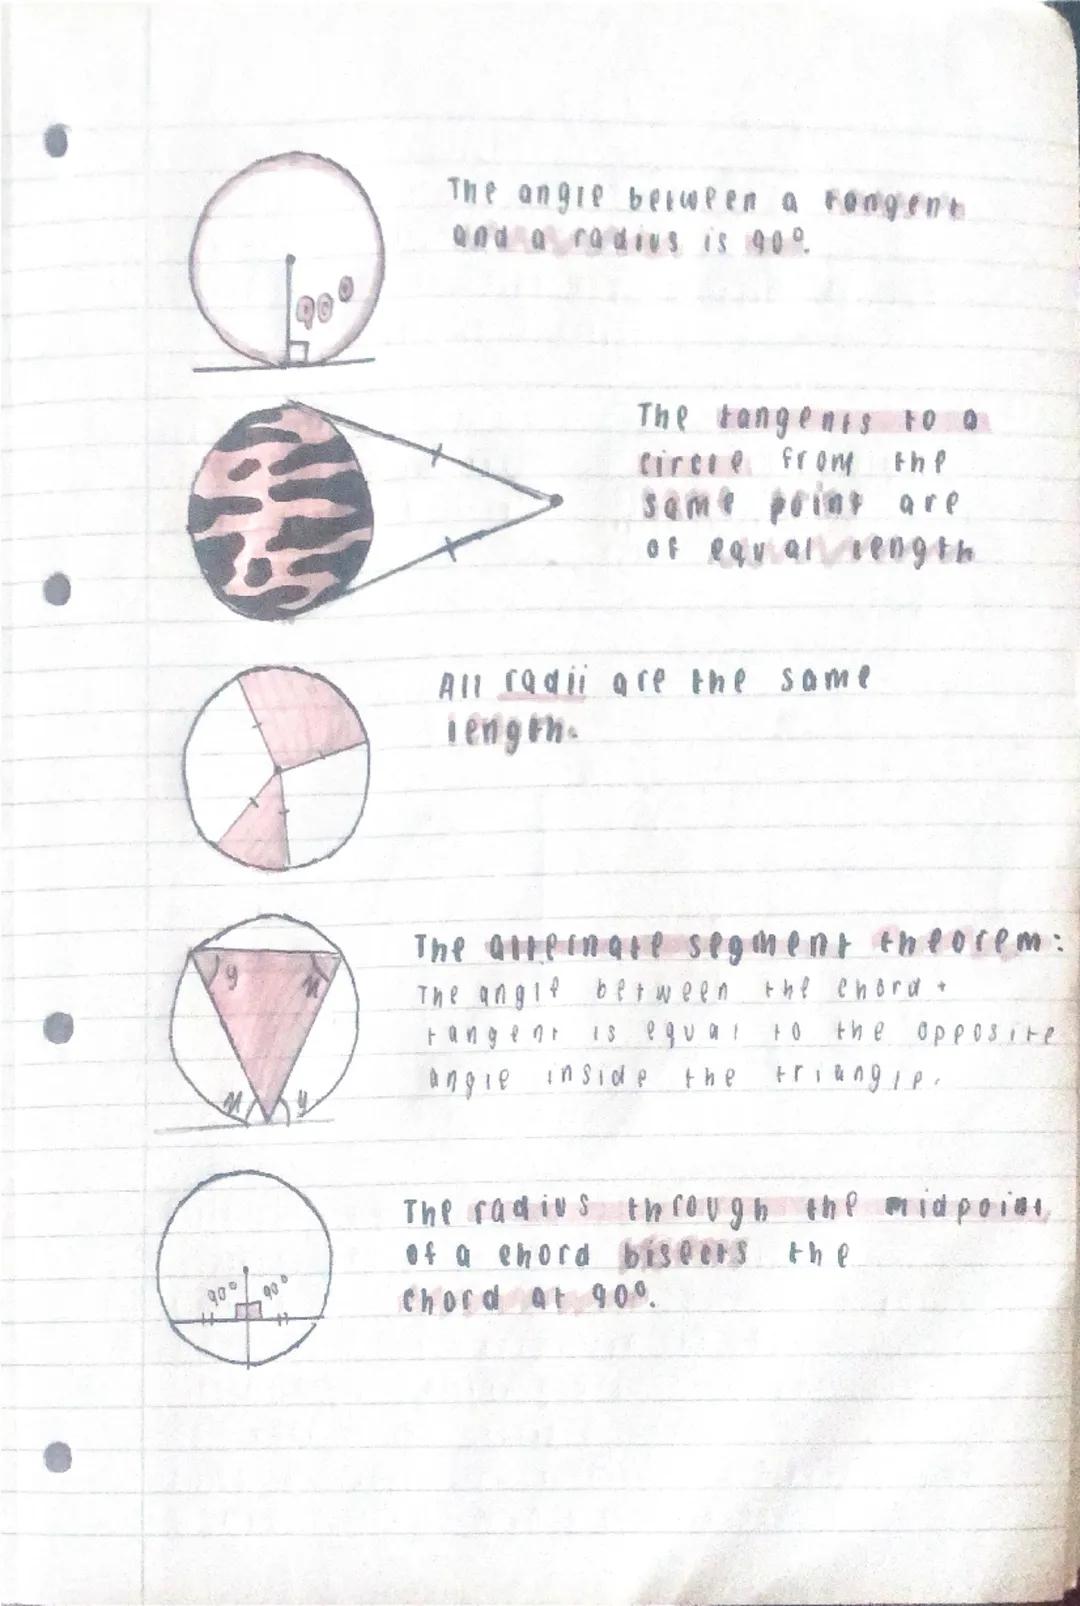 The angle between a tangent
and a radius is 90°.
90°
The tangents to a
circle from the
same point are
of equal length
All radii are the same
length.
The alternate segment theorem:
The angle between the chord +
tangent is equal to the opposite
angle inside the triangle.
y x
x y
The radius through the midpoint
of a chord bisects the
chord at 90°.
90° 90°